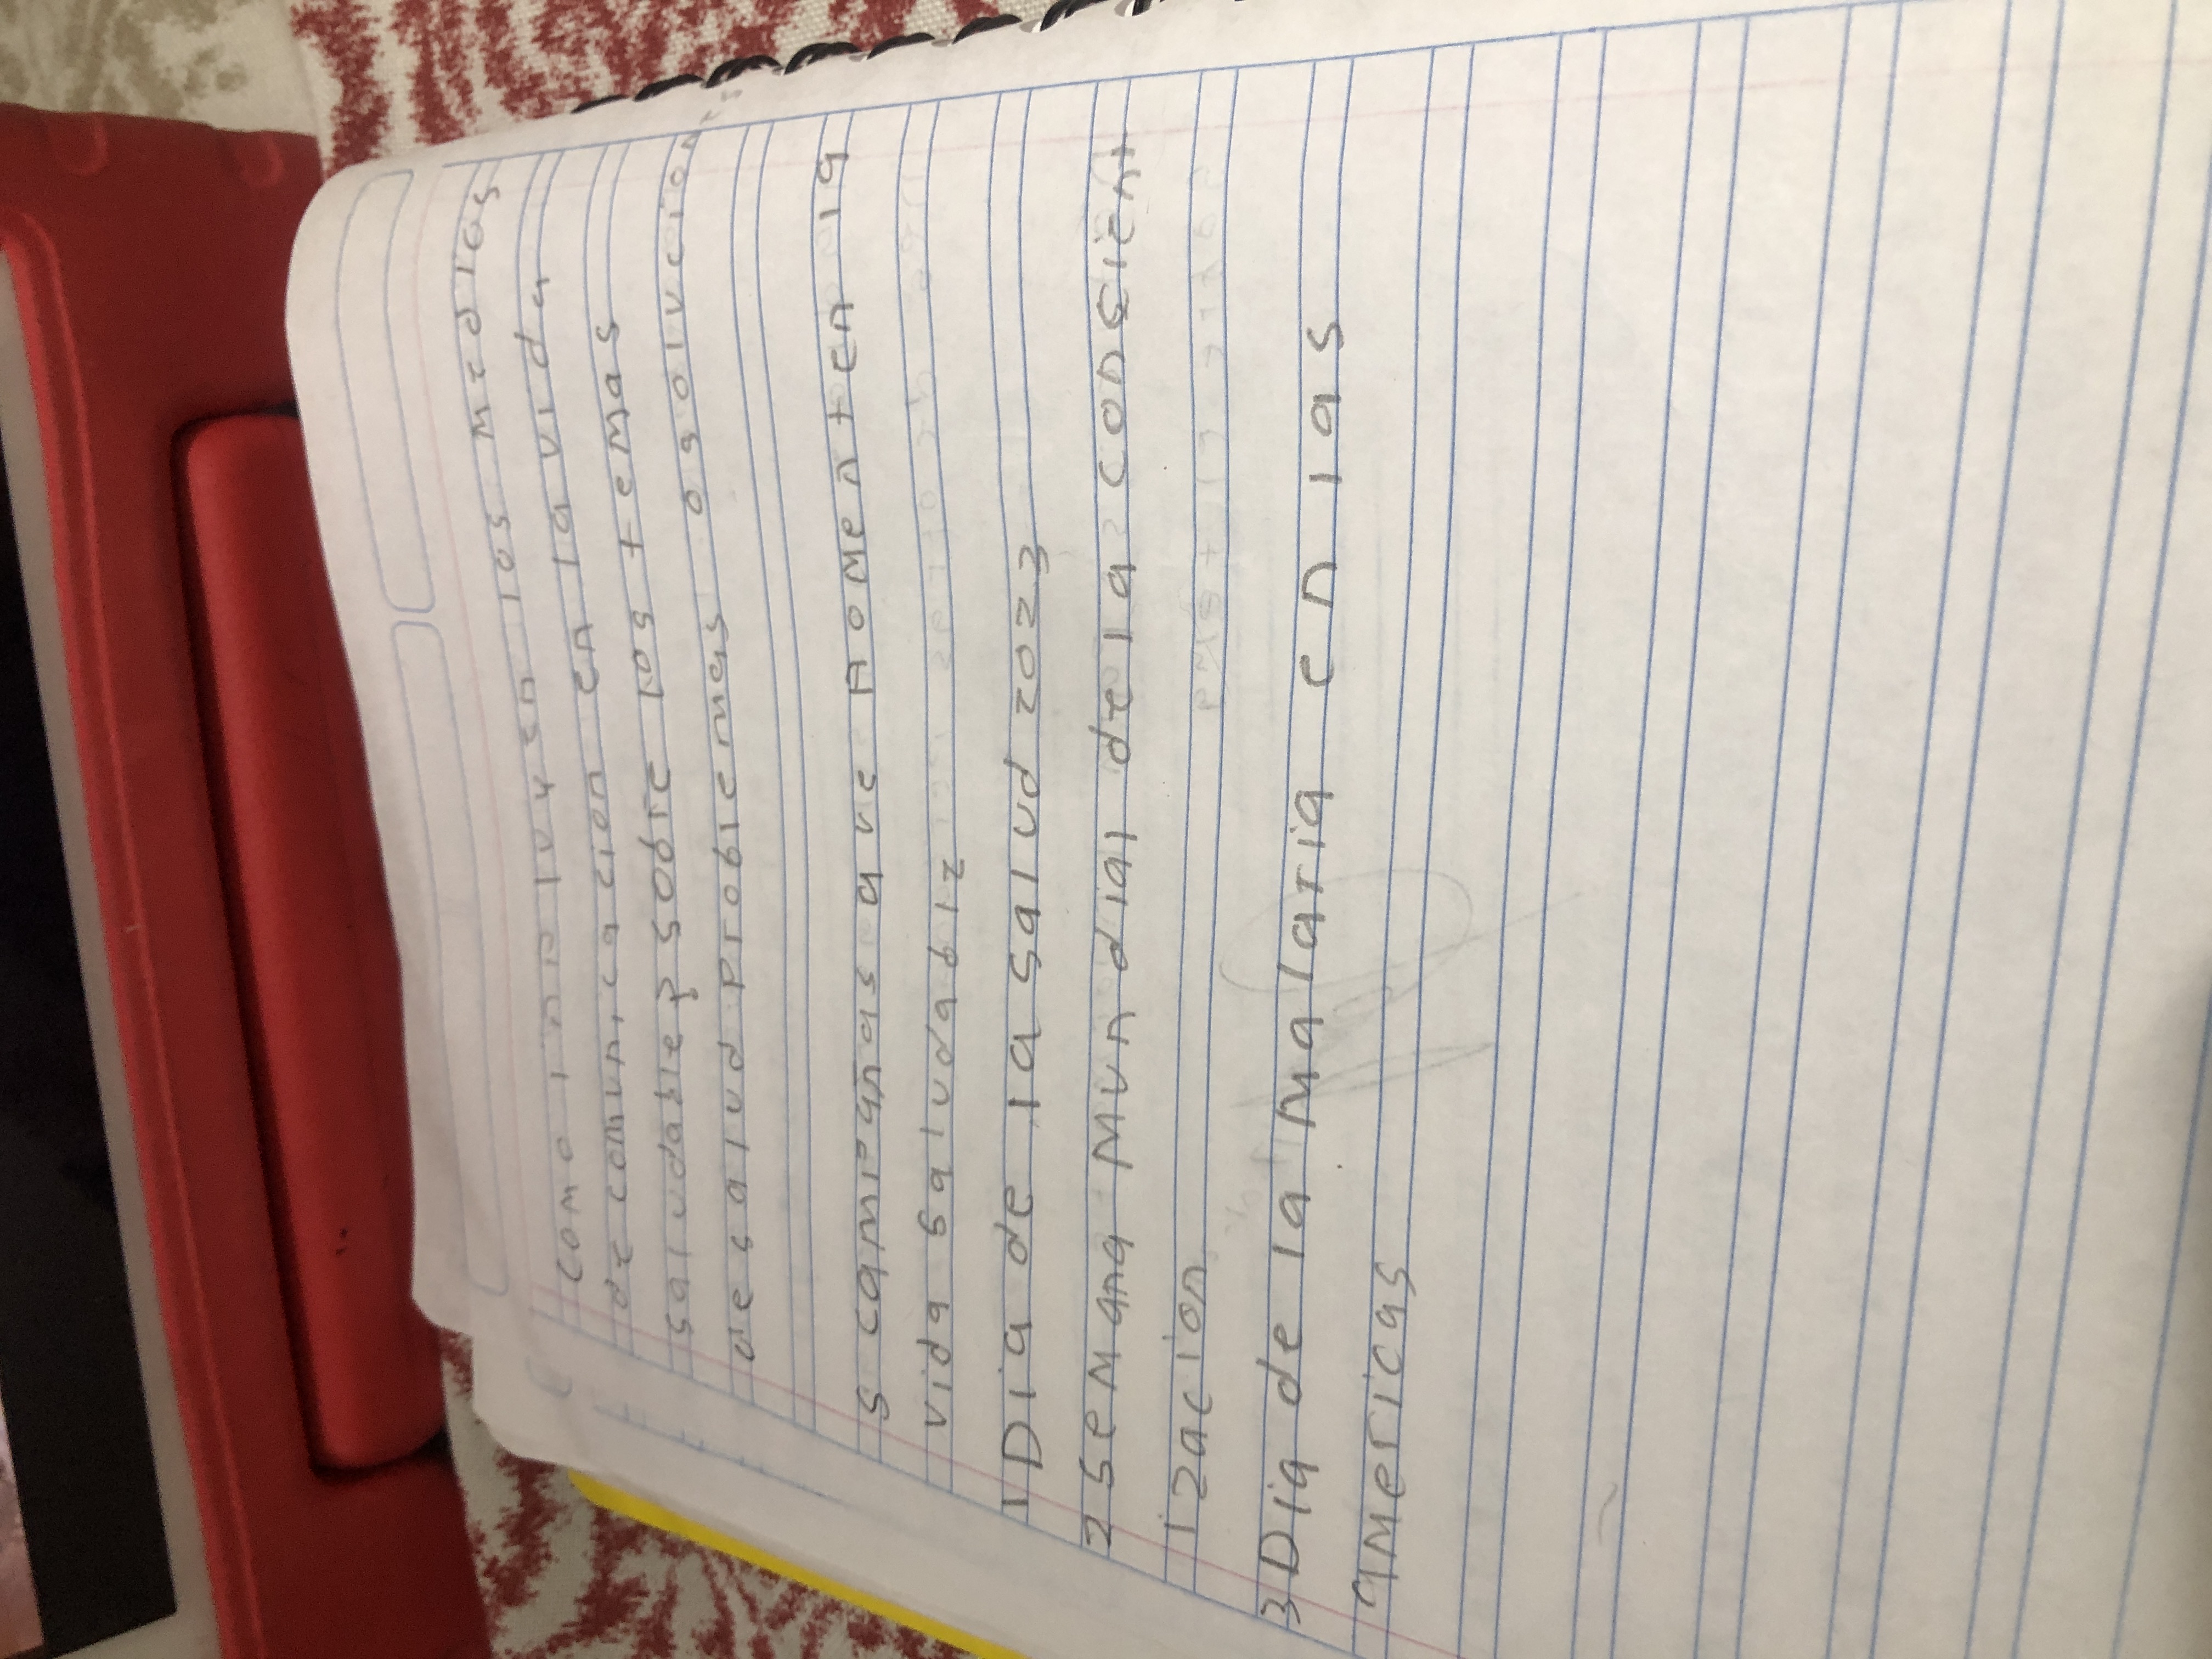 como inpluyen los medios
de comunicacion en la vida
saludable? sobre los temas
de salud problemas o solucion
5 campañas que Aomenten la
vida saludable
1 Dia de la salud 2023
2 Semana Mundial de la consient
izacion
3 Dia de la Malaria en las
americas